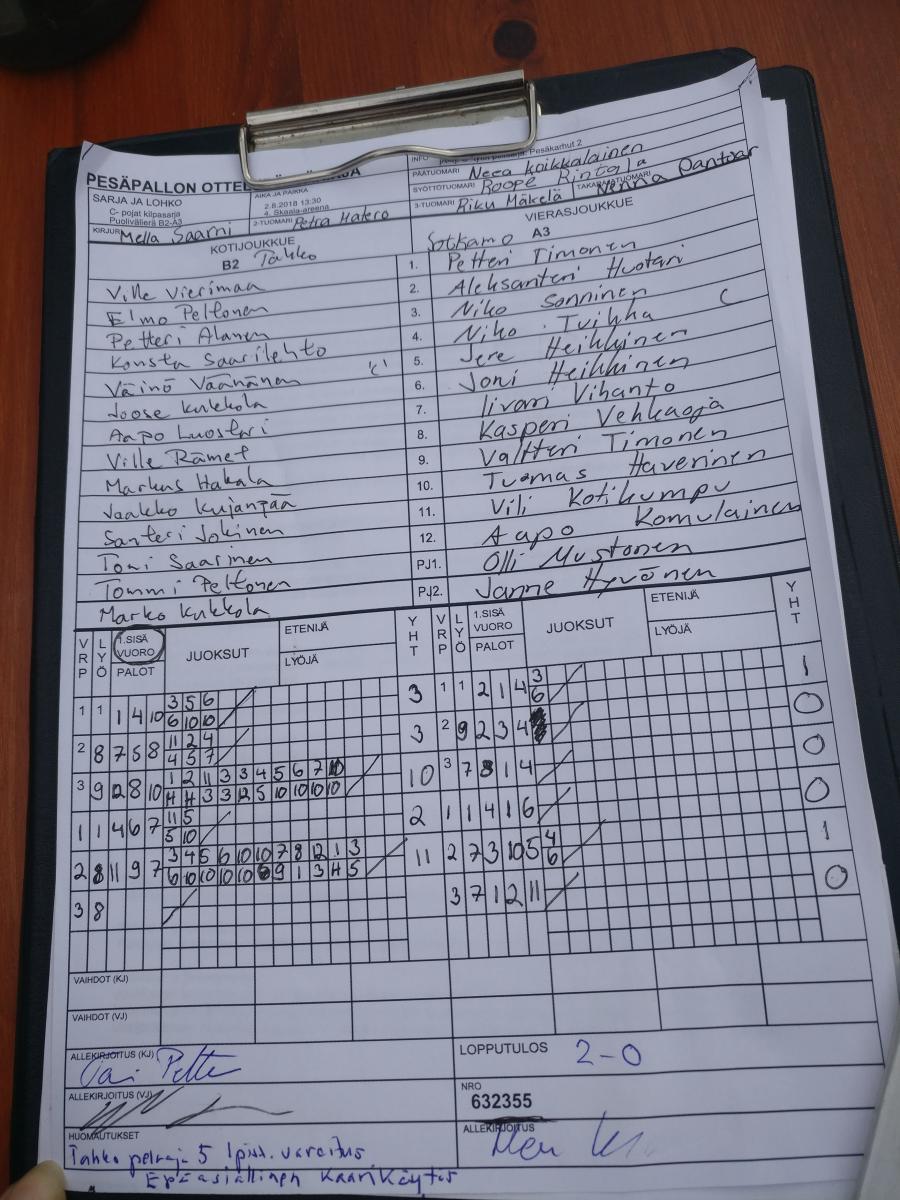 PESÄPALLON OTTEL
SARJA JA LOHKO
C- pojat kilpasarja
Puolivälierä B2-A3
AIKA JA PAIKKA
2.8.2018 13:30
4. Skaala-areena
KIRJURI Mella Saarni
2-TUOMARI Petra Hakero
INFO Pesäkarhut 2
PÄÄTUOMARI Neea Koikkalainen
SYÖTTÖTUOMARI Roope Rintala
TAKARAJATUOMARI Nenna Dantsar
3-TUOMARI Riku Mäkelä
KOTIJOUKKUE
B2 Tahko
VIERASJOUKKUE
Sotkamo A3
Ville Vierimaa 1. Petteri Timonen
Elmo Peltonen 2. Aleksanteri Huotari
Petteri Alanen 3. Niko Sonninen
Konsta Saarilehto 4. Niko Tuihka C
Väinö Väänänen "C" 5. Jere Heikkinen
Joose Kukkola 6. Joni Heikkinen
Aapo Luostari 7. Iivari Vihanto
Ville Rämet 8. Kasperi Vehkaoja
Markus Hakala 9. Valtteri Timonen
Jaakko Kujanpää 10. Tuomas Haverinen
Santeri Jokinen 11. Vili Kotikumpu
Toni Saarinen 12. Aapo Komulainen
Tommi Peltonen PJ1. Olli Mustonen
Marko Kukkola PJ2. Janne Hyvönen
VRP LYÖ 1.SISÄ VUORO PALOT JUOKSUT ETENIJÄ LYÖJÄ YHT
VRP LYÖ 1.SISÄ VUORO PALOT JUOKSUT ETENIJÄ LYÖJÄ YHT
1 1 1 4 10 3 5 6 3
6 10 10
2 8 7 5 8 11 2 4 3
4 5 7
3 9 12 8 10 1 2 11 3 3 4 5 6 7 10
4 4 3 3 12 5 10 10 10 10
1 1 4 6 7 11 5 2
5 10
2 8 11 9 7 3 4 5 6 10 10 7 8 12 1 3 11
6 10 10 10 10 9 1 3 4 5
3 8
1 1 2 1 4 3 1
6
2 9 2 3 4 0
3 7 8 1 4 0
1 1 4 1 6 0
2 7 3 10 5 4 1
6
3 7 1 2 11 0
VAIHDOT (KJ)
VAIHDOT (VJ)
ALLEKIRJOITUS (KJ)
LOPPUTULOS 2-0
ALLEKIRJOITUS (VJ)
NRO
632355
HUOMAUTUKSET
ALLEKIRJOITUS
Tahko pelaaja 5 varoitus
Epäasiallinen kaarikäytös